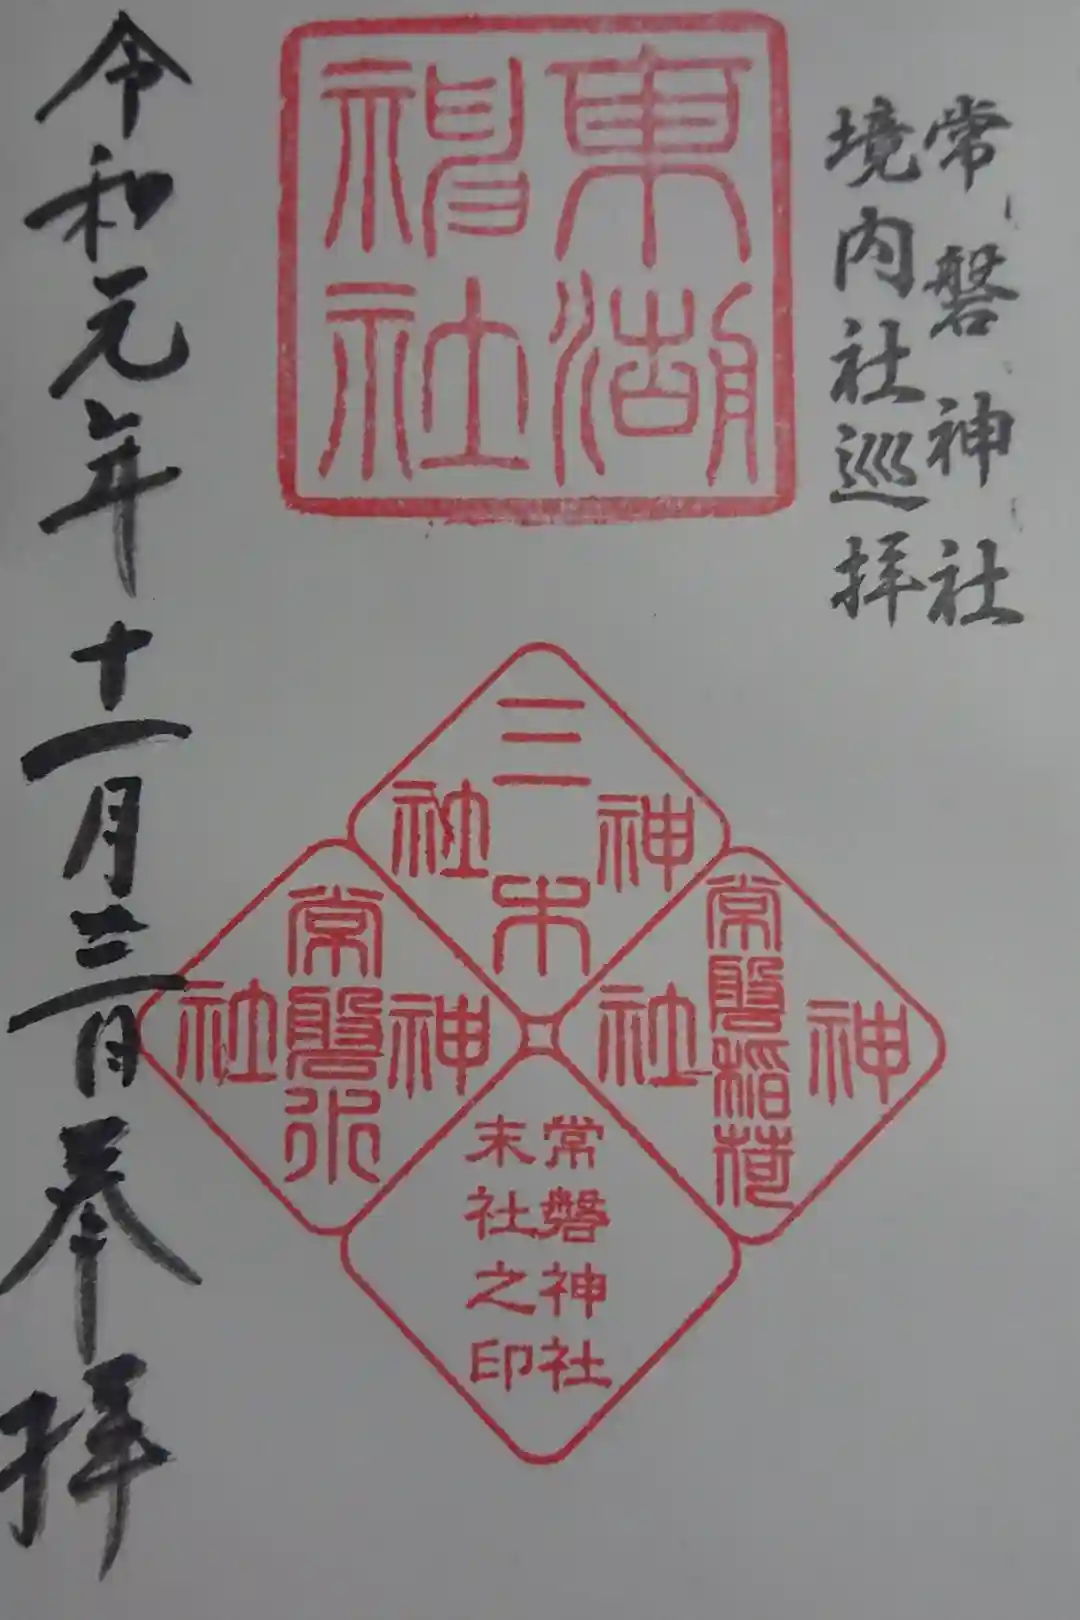 常磐神社
境内社巡拝
東湖
神社
三木
神社
常磐稲荷
神社
常磐
神社
常磐神社
末社之印
令和元年十一月三日奉拝